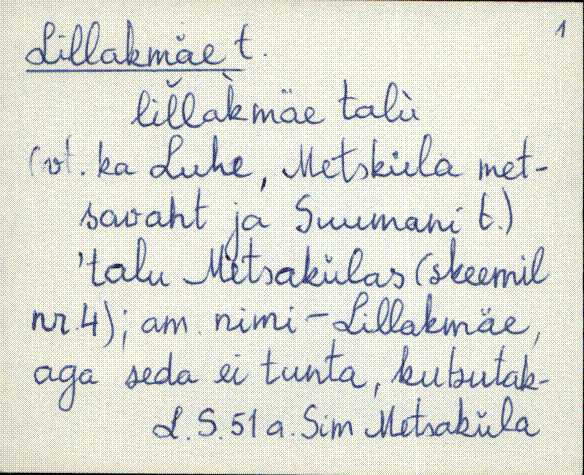 1
Lillakmäe t.
lil̆lak̀mäe talù
(vt. ka Luhe, Metsküla met-
savaht ja Suumani t.)
'talu Metsakülas (skeemil
nr 4); am. nimi – Lillakmäe,
aga seda ei tunta, kutsutak-
L. S. 51 a. Sim Metsaküla